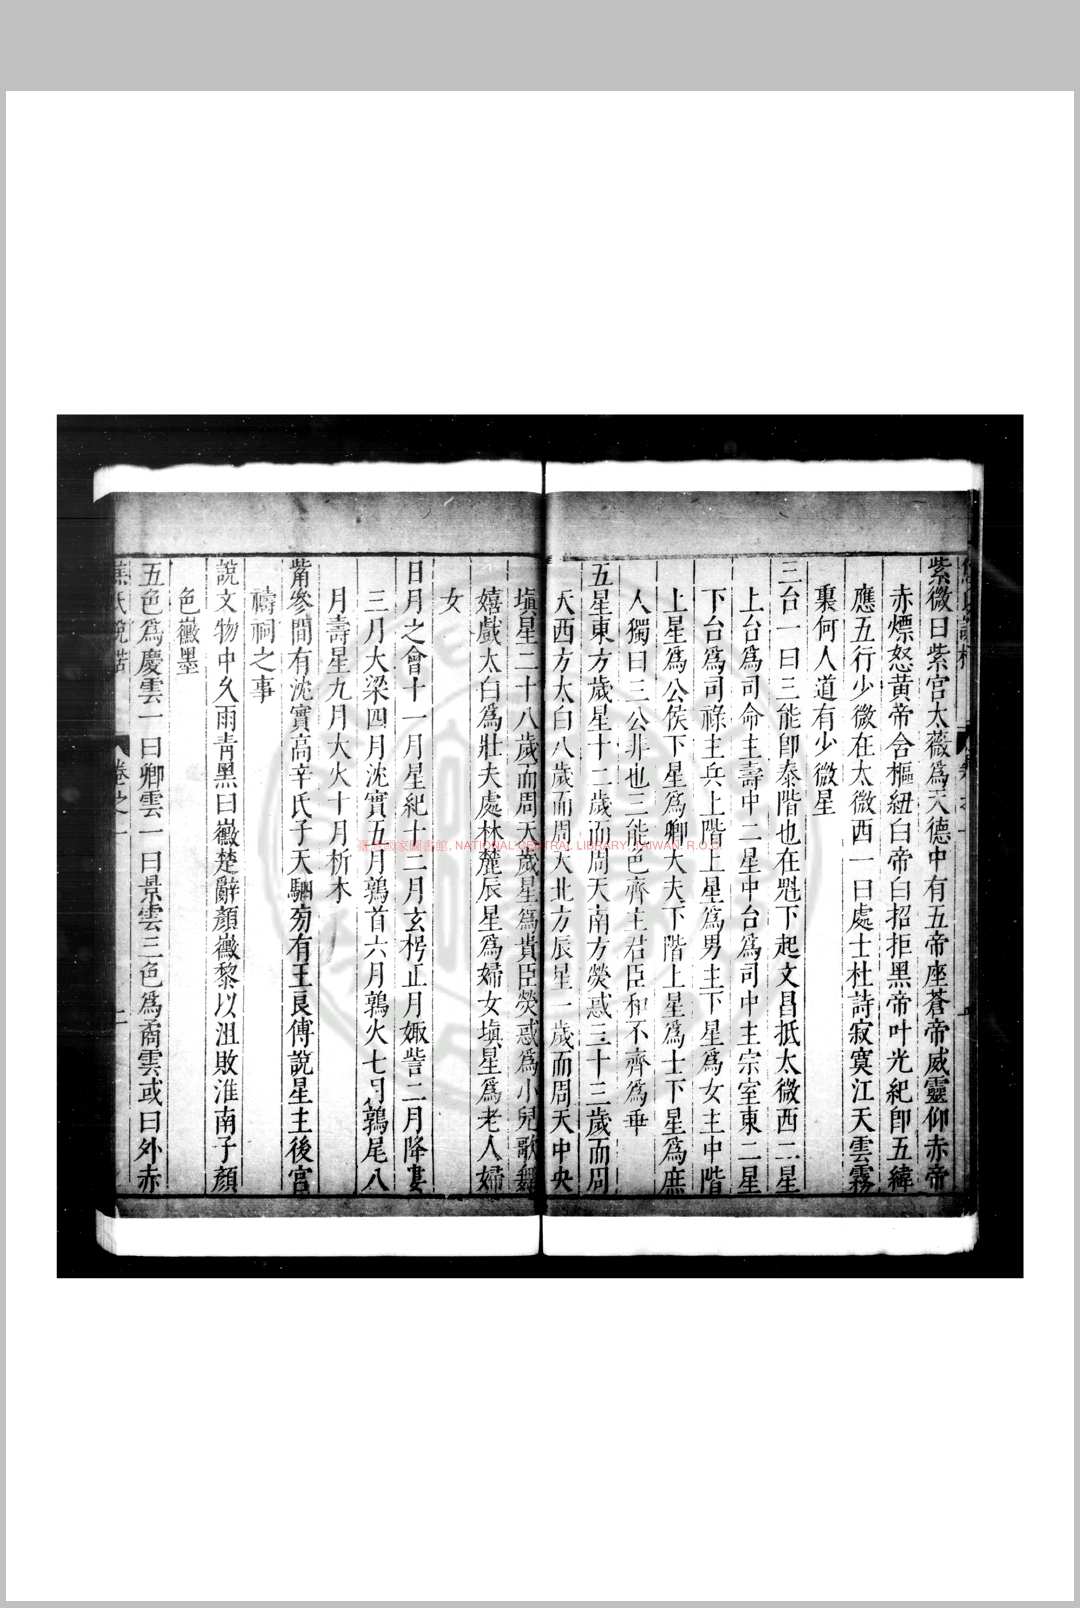 紫微曰紫宮太薇爲天德中有五帝座蒼帝威靈仰赤帝
赤熛怒黃帝含樞紐白帝白招拒黑帝叶光紀卽五緯
應五行少微在太微西一曰處士杜詩寂寞江天雲霧
裏何人道有少微星
三台一曰三能卽泰階也在魁下起文昌抵太微西二星
上台爲司命主壽中二星中台爲司中主宗室東二星
下台爲司祿主兵上階上星爲男主下星爲女主中階
上星爲公侯下星爲卿大夫下階上星爲士下星爲庶
人獨曰三公非也三能色齊主君臣和不齊爲乖
五星東方歲星十二歲而周天南方熒惑三十三歲而周
天西方太白八歲而周天北方辰星一歲而周天中央
塡星二十八歲而周天歲星爲貴臣熒惑爲小兒歌舞
嬉戲太白爲壯夫處林麓辰星爲婦女塡星爲老人婦
女
日月之會十一月星紀十二月玄枵正月娵訾二月降婁
三月大梁四月沈實五月鶉首六月鶉火七月鶉尾八
月壽星九月大火十月析木
觜參間有沈實高辛氏子天駟旁有王良傅說星主後宮
禱祠之事
說文物中久雨青黑曰黴楚辭顏黴黎以沮敗淮南子顏
色黴墨
五色爲慶雲一曰卿雲一曰景雲三色爲矞雲或曰外赤
卷之一
二
臺灣國家圖書館, NATIONAL CENTRAL LIBRARY, TAIWAN, R.O.C